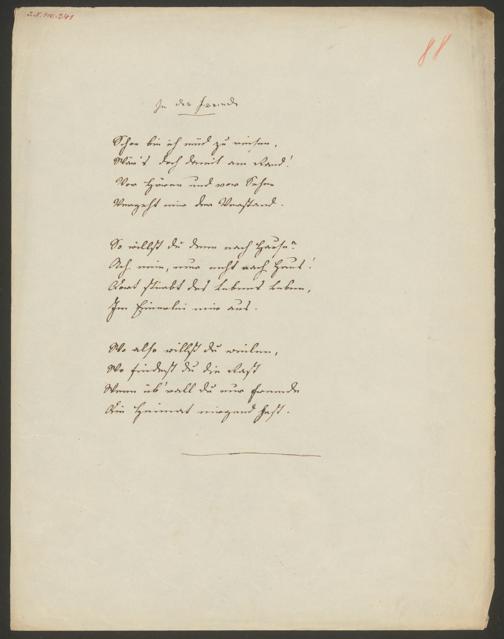 88
In der Fremde
Schon bin ich müd zu reisen,
Wär's doch damit am Rand!
Vor Hören und vor Sehen
Vergeht mir der Verstand.
So willst du denn nach Hause?
Ach nein, nur nicht nach Haus!
Dort stirbt des Lebens Leben,
Im Einerlei mir aus.
Wo also willst du weilen,
Wo findest du die Rast
Wenn üb'rall du nur Fremde
Die Heimat nirgend hast.